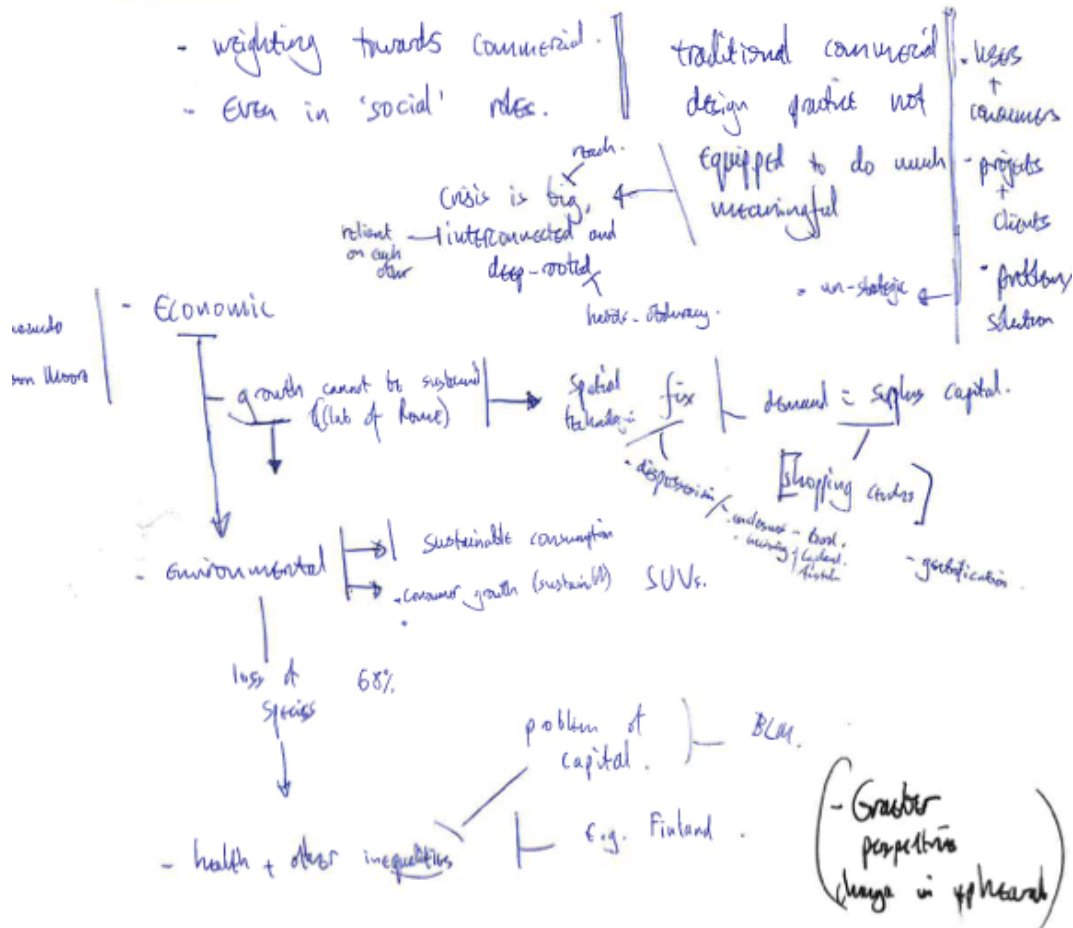 - weighting towards commercial.
- Even in 'social' roles.
traditional commercial
design practice not
equipped to do much
meaningful
- users
+
consumers
- projects
+
clients
- problem/
solution
- un-strategic
reach.
Crisis is big,
interconnected and
deep-rooted
reliant
on each
other
- Economic
- growth cannot be sustained
(Club of Rome)
Spatial
fix
demand = surplus capital.
[shopping centres]
- dispossession
- gentrification.
- Environmental
sustainable consumption
consumer growth (sustain
SUVs.
loss of 68%
species
problem of
capital.
BLM.
- health + other inequalities
e.g. Finland.
- Greater
perspective
change in